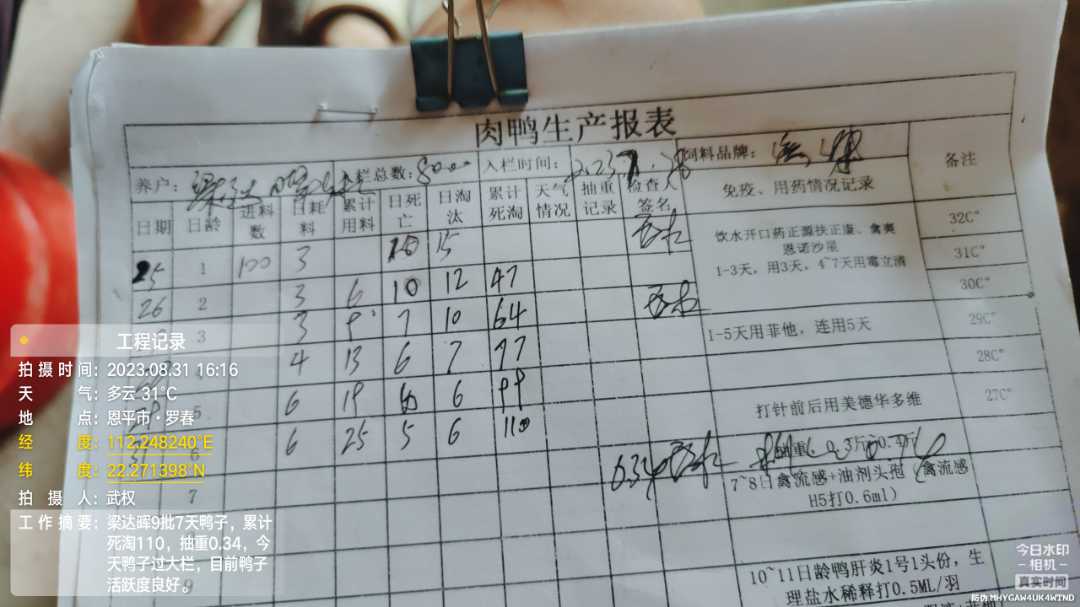 肉鸭生产报表
养户： 入栏总数：8000 入栏时间： 饲料品牌： 备注
日期 日龄 进料数 日耗料 累计用料 日死亡 日淘汰 累计死淘 天气情况 抽重记录 检查人签名 免疫、用药情况记录
25 1 100 3 10 15
饮水开口药正源扶正康、禽爽
恩诺沙星
1-3天，用3天，4~7天用霉立清
32C°
31C°
26 2 3 6 10 12 47
30C°
3 3 9 7 10 64
1-5天用菲他，连用5天
29C°
4 13 6 7 77
28C°
5 6 19 6 6 99
打针前后用美德华多维
27C°
6 6 25 5 6 110
0.34
7
7~8日禽流感+油剂头孢（禽流感
H5打0.6ml）
9
10~11日龄鸭肝炎1号1头份，生
理盐水稀释打0.5ML/羽
工程记录
拍摄时间：2023.08.31 16:16
天气：多云 31℃
地点：恩平市·罗春
经度：112.248240°E
纬度：22.271398°N
拍摄人：武权
工作摘要：梁达晖9批7天鸭子，累计
死淘110，抽重0.34，今
天鸭子过大栏，目前鸭子
活跃度良好。
今日水印
-相机-
真实时间
防伪 MHYGAW4UK4WTND